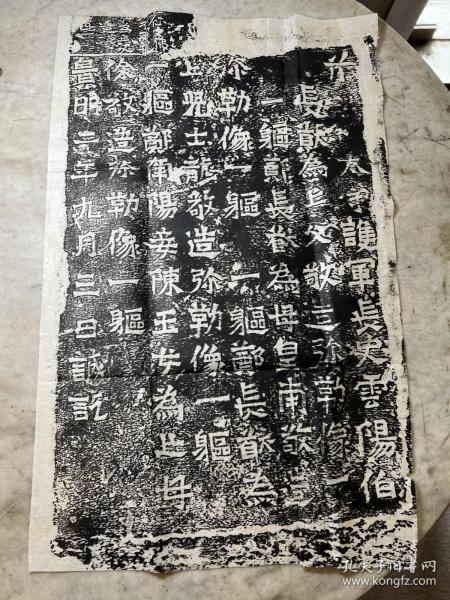 太守護軍長史雲陽伯
長猷為亡父敬造弥勒像一
一軀鄭長猷為母皇甫敬造
弥勒像一軀 一軀鄭長猷為
亡児士龍敬造弥勒像一軀
一軀鄭南陽妾陳玉女為亡母
徐敬造弥勒像一軀
景明二年九月三日誡訖
孔夫子旧书网
www.kongfz.com